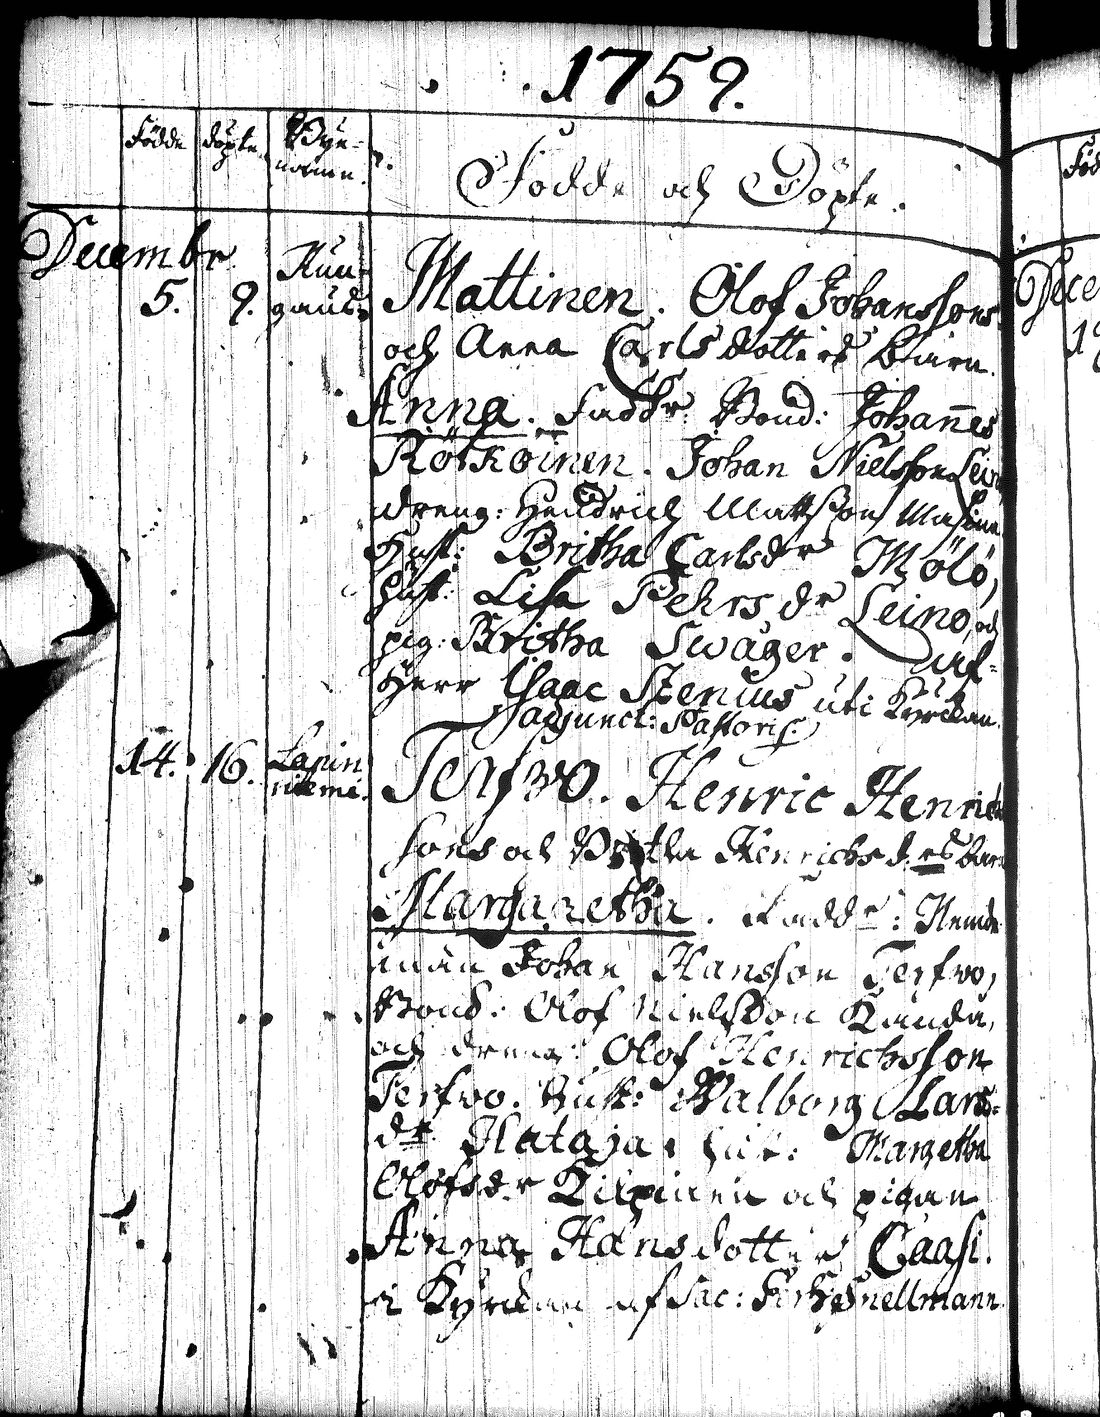 1759.
Födde döpte Bye-
namn.
Födde och Döpte.
Decembr.
5. 9. Kun-
gauds
Mattinen. Olof Johanssons
och Anna Carlsdotters barn
Anna. Faddr: Bond: Johannes
Rötköinen. Johan Nielsson Lein
dreng: Hendrich Mattsson
Hust: Britha Carlsdr Mölö,
Hust: Lisa Pehrsdr Leino, och
pig: Britha Swäger. af
Herr Isaac Stenius uti Kyrckan.
Adjunct: Pastoris.
14. 16. Lapin
niemi.
Terfwo. Henric Henrich
sons och Britha Henrichsd:rs barn
Margaretha. Faddr: Nemde
man Johan Hansson Terfwo,
Bond: Olof Nielsson Kunda,
och dreng: Olof Henrichsson
Terfwo. Hust: Walborg Lars
dr Hataja. Hust: Margetha
Olofsdr Kilpinen och pigan
Anna Hansdotter Caasi.
i Kyrckan af Sac: Snellmann